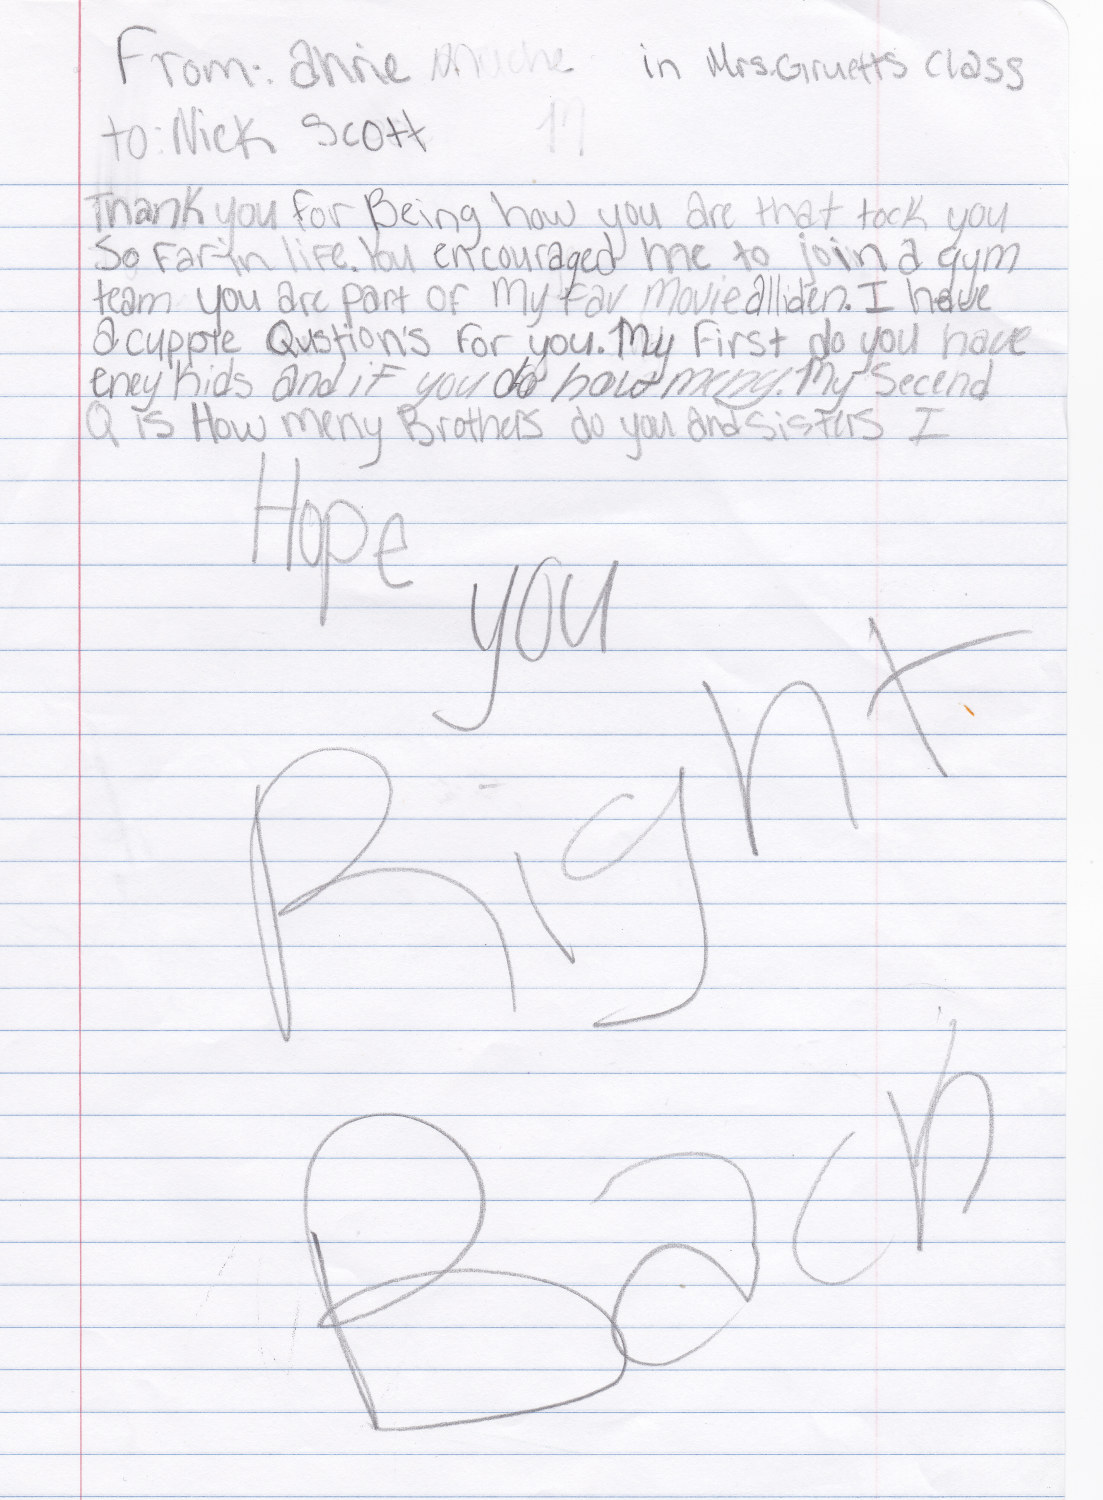 From: annie in Mrs. Gruetts class
to: Nick Scott
Thank you for Being how you are that tock you
So Far in life. You encouraged me to join a gym
team you are part of My fav Movie alliden. I have
a cuppte Qustion's For you. My First do you have
eney kids and if you do how meny. My Second
Q is How meny Brothers do you and sisters I
Hope
you
Right
Bach